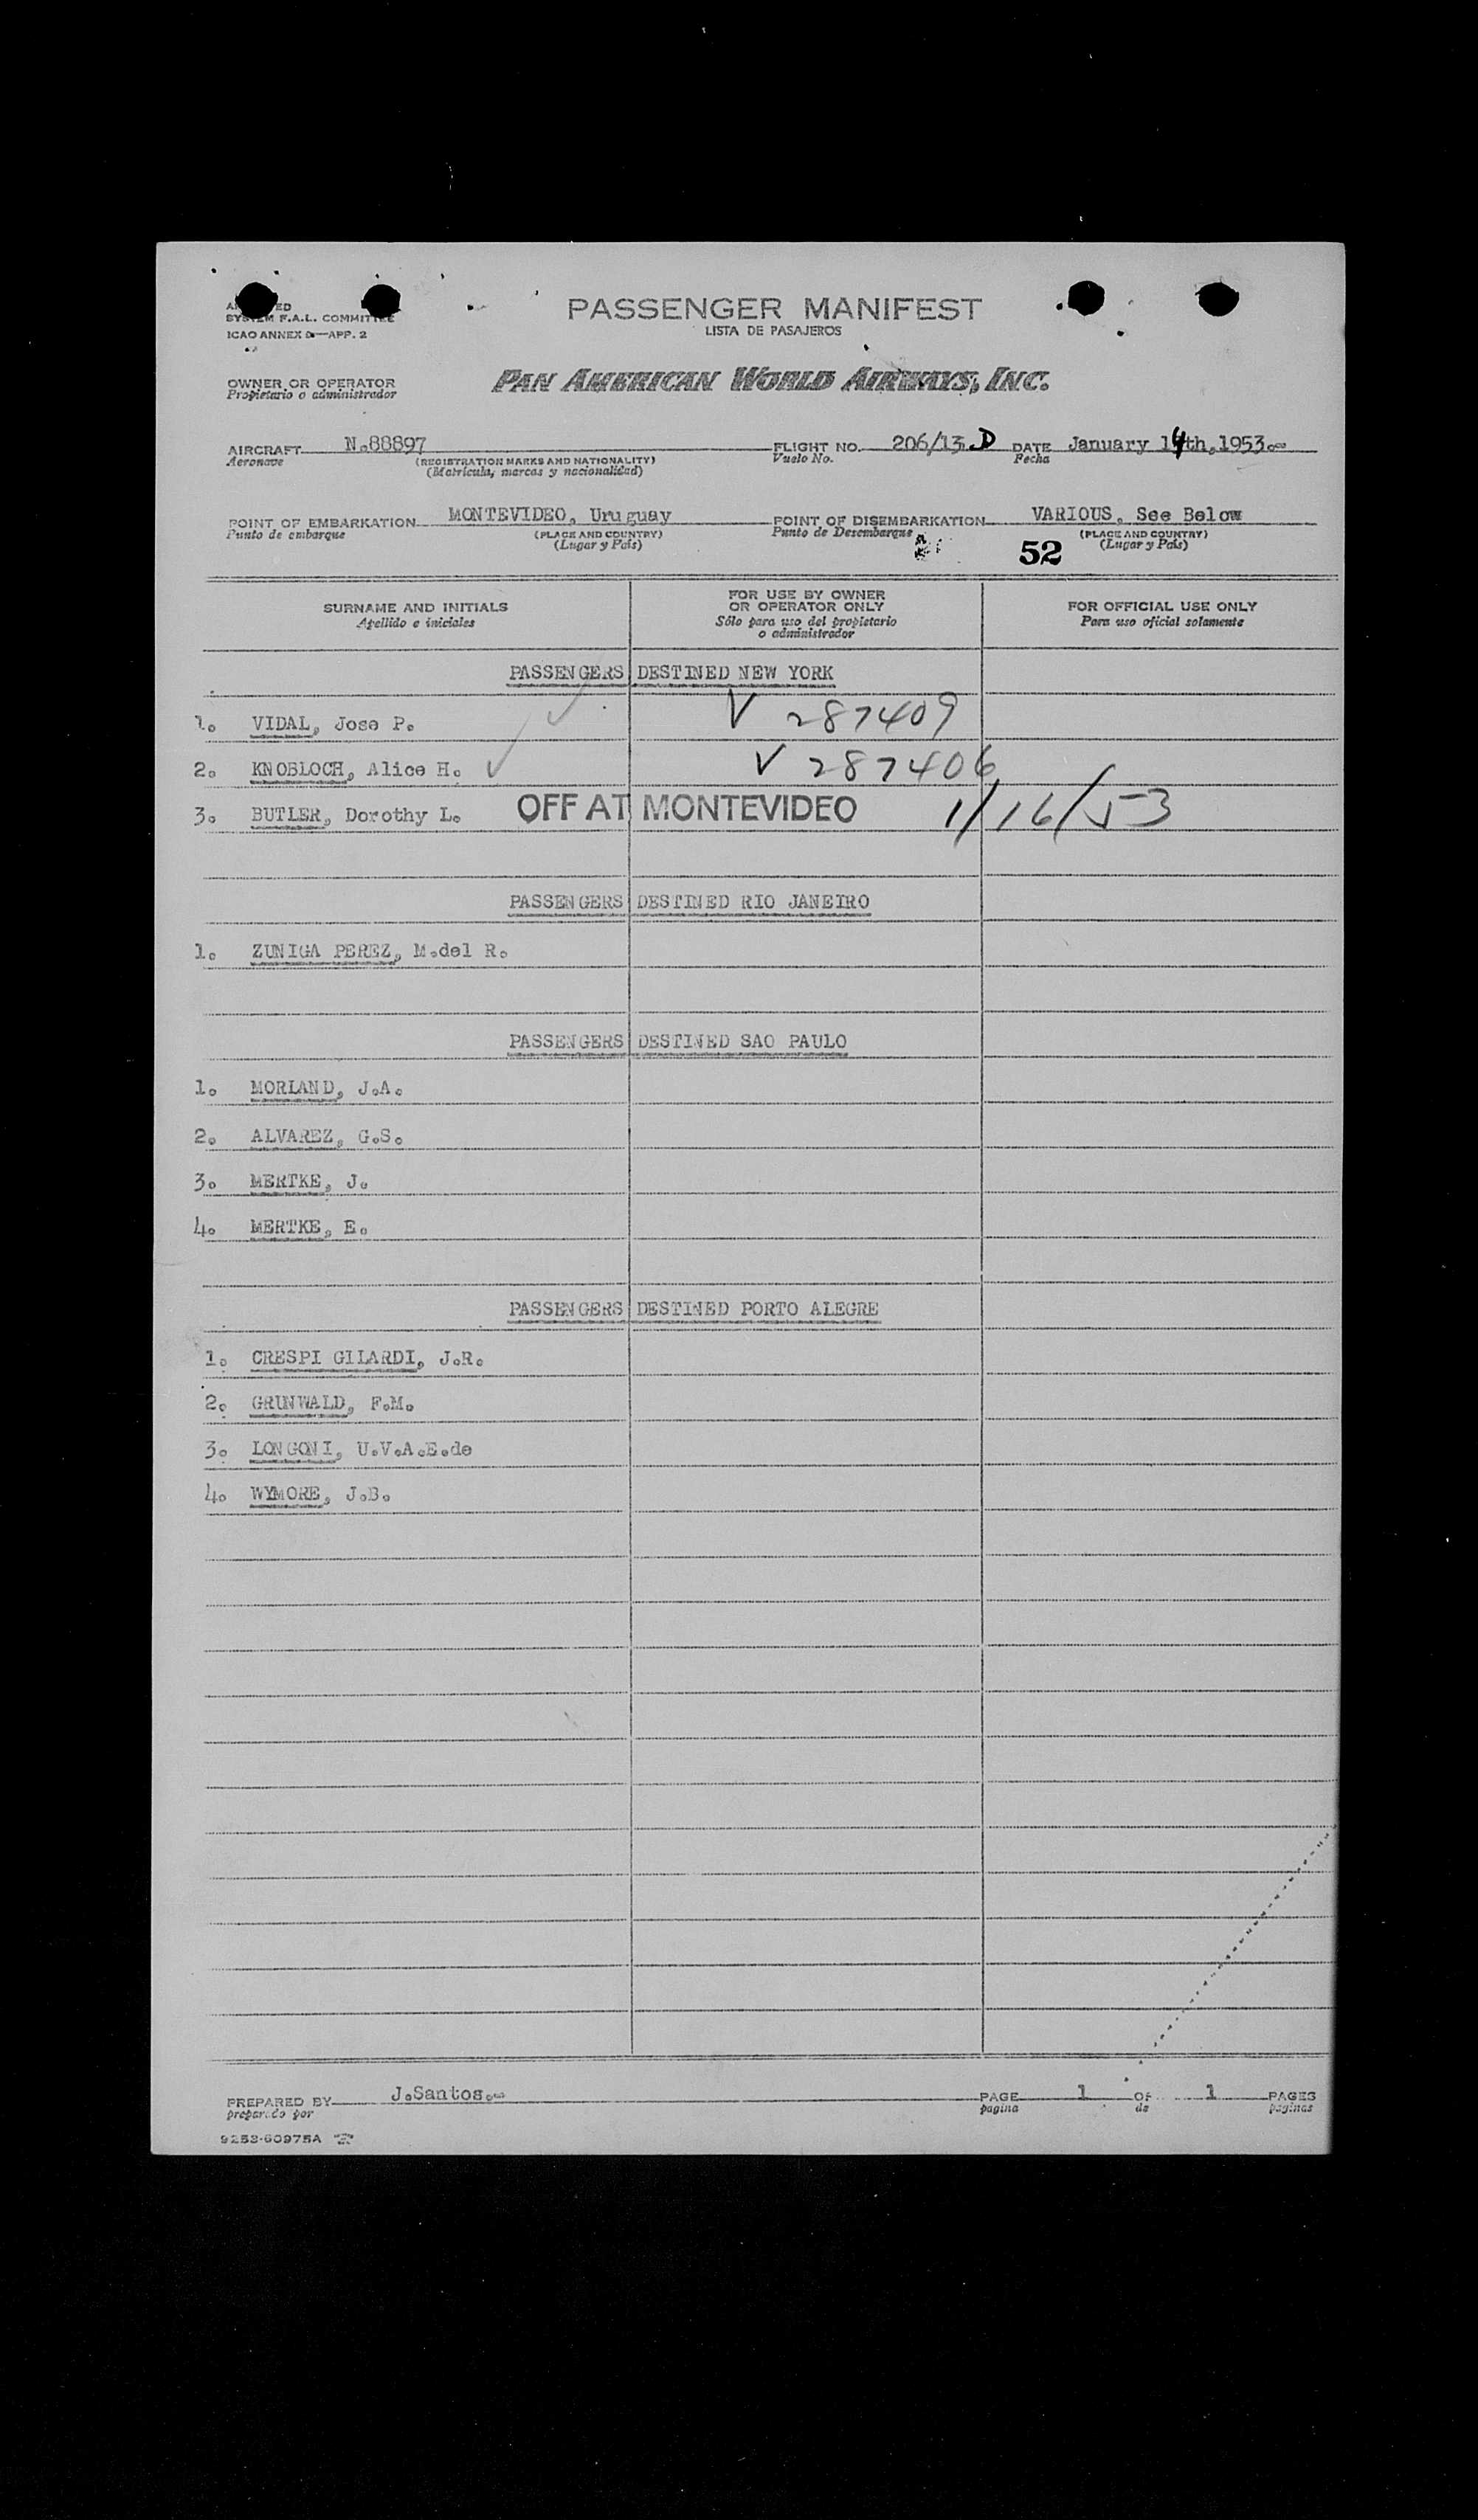 PASSENGER MANIFEST
LISTA DE PASAJEROS
SYSTEM F.A.L. COMMITTEE
ICAO ANNEX 9—APP. 2
OWNER OR OPERATOR
Propietario o administrador
PAN AMERICAN WORLD AIRWAYS, INC.
AIRCRAFT N.88897 FLIGHT NO. 206/13 D DATE January 14th,1953.-
Aeronave (REGISTRATION MARKS AND NATIONALITY) Vuelo No. Fecha
(Matricula, marcas y nacionalidad)
POINT OF EMBARKATION MONTEVIDEO, Uruguay POINT OF DISEMBARKATION VARIOUS, See Below
Punto de embarque (PLACE AND COUNTRY) Punto de Desembarque (PLACE AND COUNTRY)
(Lugar y País) 52 (Lugar y País)
SURNAME AND INITIALS
Apellido e iniciales
FOR USE BY OWNER
OR OPERATOR ONLY
Sólo para uso del propietario
o administrador
FOR OFFICIAL USE ONLY
Para uso oficial solamente
PASSENGERS DESTINED NEW YORK
1. VIDAL, Jose P. ✓ V 287409
2. KNOBLOCH, Alice H. ✓ V 287406
3. BUTLER, Dorothy L. OFF AT MONTEVIDEO 1/16/53
PASSENGERS DESTINED RIO JANEIRO
1. ZUNIGA PEREZ, M.del R.
PASSENGERS DESTINED SAO PAULO
1. MORLAND, J.A.
2. ALVAREZ, G.S.
3. MERTKE, J.
4. MERTKE, E.
PASSENGERS DESTINED PORTO ALEGRE
1. CRESPI GILARDI, J.R.
2. GRUNWALD, F.M.
3. LONGONI, U.V.A.E.de
4. WYMORE, J.B.
PREPARED BY J.Santos.- PAGE 1 OF 1 PAGES
preparado por pagina de paginas
9253-60975A